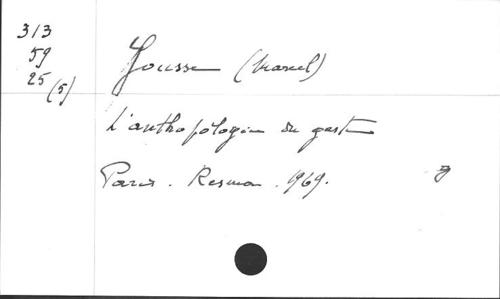 313
59
25 (5)
Jousse (Marcel)
L'anthropologie du geste
Paris. Resma. 1969.